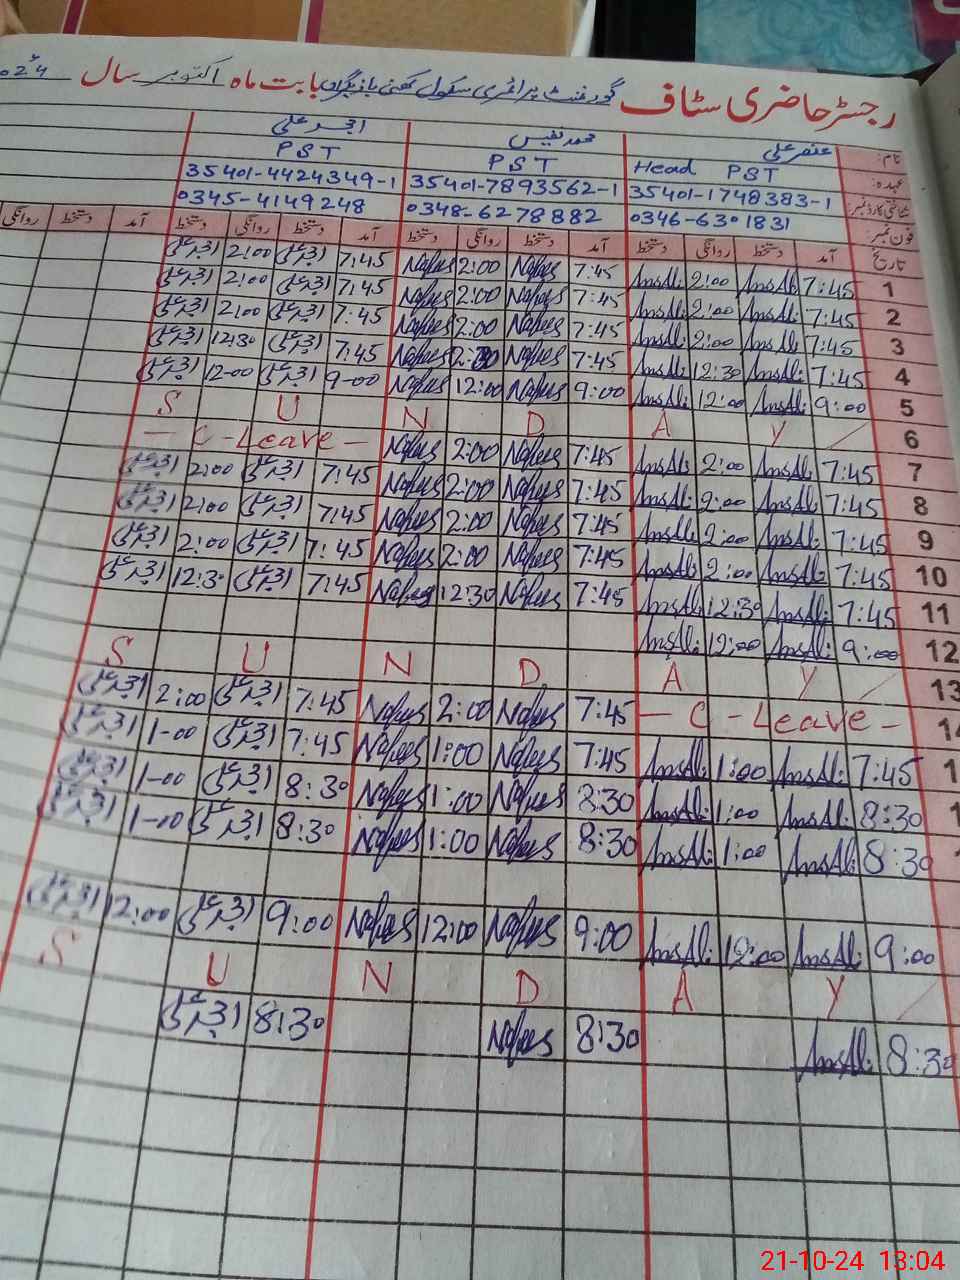 رجسٹر حاضری سٹاف گورنمنٹ پرائمری سکول بابت ماہ اکتوبر سال
نام: عنصر علی محمد نفیس امجد علی
عہدہ: Head PST PST PST
شناختی کارڈ نمبر: 35401-1748383-1 35401-7893562-1 35401-4424349-1
فون نمبر: 0346-6301831 0348-6278882 0345-4149248
تاریخ آمد دستخط روانگی دستخط آمد دستخط روانگی دستخط آمد دستخط روانگی دستخط آمد دستخط روانگی
1 7:45 AnsAli 2:00 AnsAli 7:45 Nafees 2:00 Nafees 7:45 امجد علی 2:00 امجد علی
2 7:45 AnsAli 2:00 AnsAli 7:45 Nafees 2:00 Nafees 7:45 امجد علی 2:00 امجد علی
3 7:45 AnsAli 2:00 AnsAli 7:45 Nafees 2:00 Nafees 7:45 امجد علی 2:00 امجد علی
4 7:45 AnsAli 12:30 AnsAli 7:45 Nafees Nafees 7:45 امجد علی 12:30 امجد علی
5 9:00 AnsAli 12:00 AnsAli 9:00 Nafees 12:00 Nafees 9-00 امجد علی 12-00 امجد علی
6 S U N D A Y
7 7:45 AnsAli 2:00 AnsAli 7:45 Nafees 2:00 Nafees - C-Leave -
8 7:45 AnsAli 2:00 AnsAli 7:45 Nafees 2:00 Nafees 7:45 امجد علی 2:00 امجد علی
9 7:45 AnsAli 2:00 AnsAli 7:45 Nafees 2:00 Nafees 7:45 امجد علی 2:00 امجد علی
10 7:45 AnsAli 2:00 AnsAli 7:45 Nafees 2:00 Nafees 7:45 امجد علی 2:00 امجد علی
11 7:45 AnsAli 12:30 AnsAli 7:45 Nafees 12:30 Nafees 7:45 امجد علی 12:30 امجد علی
12 9:00 AnsAli 12:00 AnsAli
13 S U N D A Y
- C - Leave - 7:45 Nafees 2:00 Nafees 7:45 امجد علی 2:00 امجد علی
7:45 AnsAli 1:00 AnsAli 7:45 Nafees 1:00 Nafees 7:45 امجد علی 1-00 امجد علی
8:30 AnsAli 1:00 AnsAli 8:30 Nafees 1:00 Nafees 8:30 امجد علی 1-00 امجد علی
8:30 AnsAli 1:00 AnsAli 8:30 Nafees 1:00 Nafees 8:30 امجد علی 1-00 امجد علی
9:00 AnsAli 12:00 AnsAli 9:00 Nafees 12:00 Nafees 9:00 امجد علی 12:00 امجد علی
S U N D A Y
8:30 AnsAli 8:30 Nafees 8:30 امجد علی
21-10-24 13:04